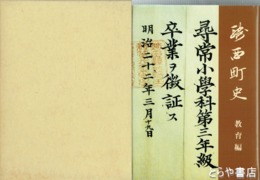 西町史
教育編
尋常小學科第三年級
卒業ヲ徴証ス
明治二十二年三月
とらや書店